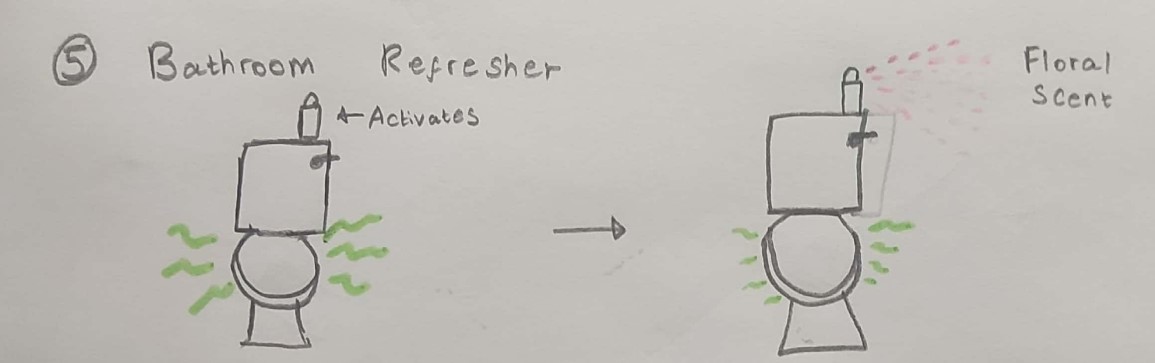 5 Bathroom Refresher
← Activates
Floral
Scent